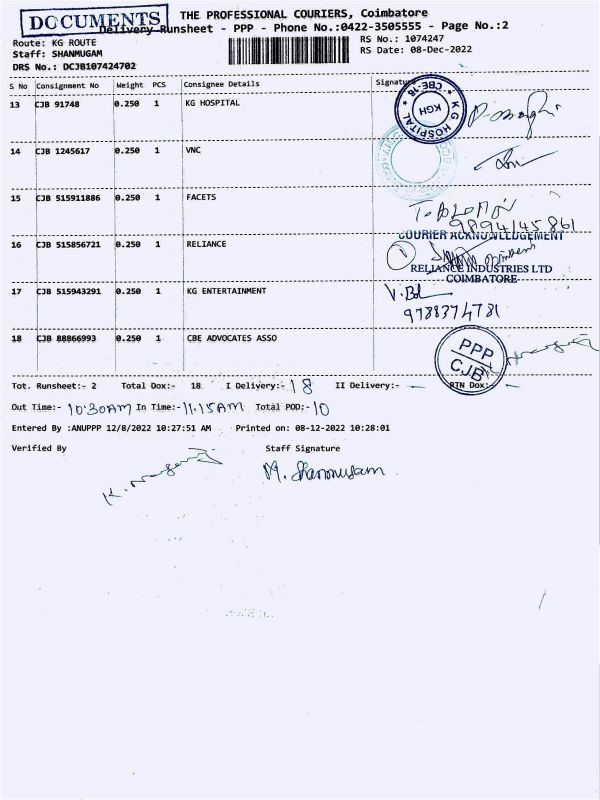 DOCUMENTS
THE PROFESSIONAL COURIERS, Coimbatore
Delivery Runsheet - PPP - Phone No.:0422-3505555 - Page No.:2
Route: KG ROUTE
RS No.: 1074247
Staff: SHANMUGAM
RS Date: 08-Dec-2022
DRS No.: DCJB107424702
S No Consignment No Weight PCS Consignee Details Signature
13 CJB 91748 0.250 1 KG HOSPITAL
K G HOSPITAL * CBE-18 *
KGH
14 CJB 1245617 0.250 1 VNC
15 CJB 515911886 0.250 1 FACETS
9894145861
COURIER ACKNOWLEDGEMENT
16 CJB 515856721 0.250 1 RELIANCE
RELIANCE INDUSTRIES LTD
COIMBATORE
17 CJB 515943291 0.250 1 KG ENTERTAINMENT
9788374781
18 CJB 88866993 0.250 1 CBE ADVOCATES ASSO
PPP
CJB
Tot. Runsheet:- 2 Total Dox:- 18 I Delivery:- 18 II Delivery:- — RTN Dox:- —
Out Time:- 10:30AM In Time:- 11.15AM Total POD:- 10
Entered By :ANUPPP 12/8/2022 10:27:51 AM Printed on: 08-12-2022 10:28:01
Verified By Staff Signature
M. Shanmugam